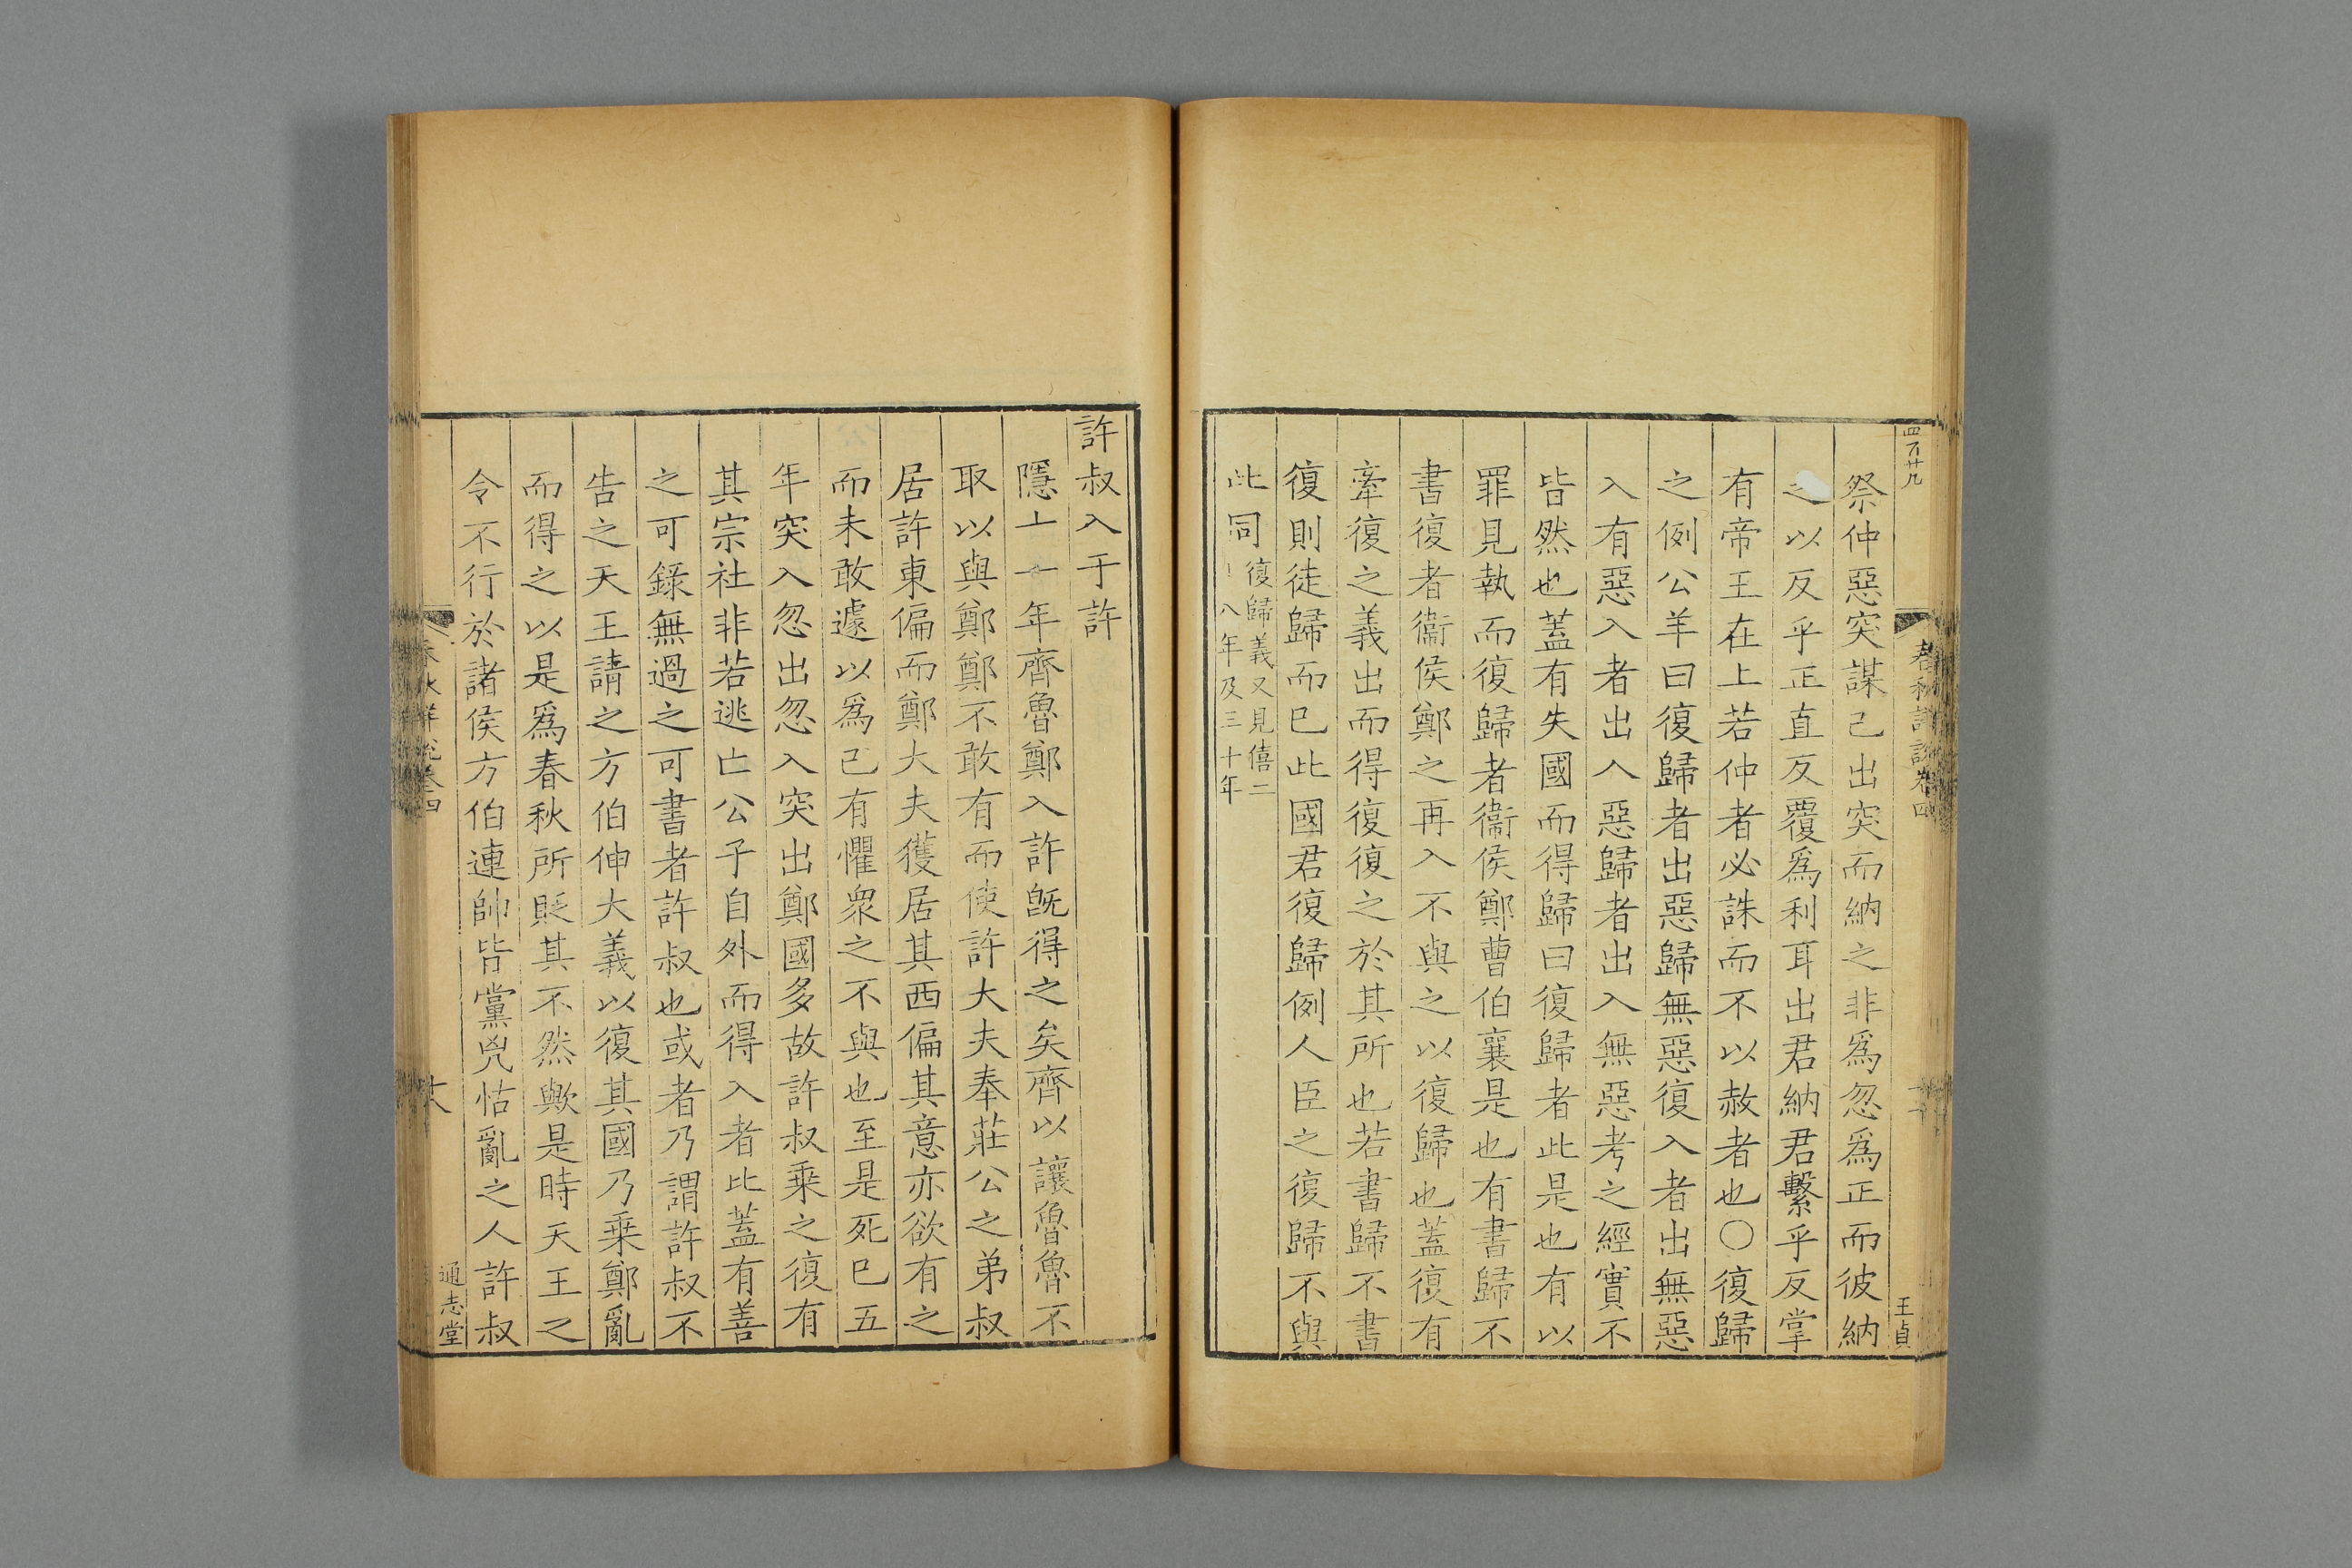 四百廿九
春秋詳說卷四
王貞
祭仲惡突謀己出突而納之非爲忽爲正而彼納
之以反乎正直反覆爲利耳出君納君繫乎反掌
有帝王在上若仲者必誅而不以赦者也〇復歸
之例公羊曰復歸者出惡歸無惡復入者出無惡
入有惡入者出入惡歸者出入無惡考之經實不
皆然也蓋有失國而得歸曰復歸者此是也有以
罪見執而復歸者衞侯鄭曹伯襄是也有書歸不
書復者衞侯鄭之再入不與之以復歸也蓋復有
牽復之義出而得復復之於其所也若書歸不書
復則徒歸而已此國君復歸例人臣之復歸不與
此同復歸義又見僖二
八年及三十年
許叔入于許
隱十一年齊魯鄭入許旣得之矣齊以讓魯魯不
取以與鄭鄭不敢有而使許大夫奉莊公之弟叔
居許東偏而鄭大夫獲居其西偏其意亦欲有之
而未敢遽以爲己有懼衆之不與也至是死巳五
年突入忽出忽入突出鄭國多故許叔乗之復有
其宗社非若逃亡公子自外而得入者比蓋有善
之可錄無過之可書者許叔也或者乃謂許叔不
告之天王請之方伯伸大義以復其國乃乗鄭亂
而得之以是爲春秋所貶其不然歟是時天王之
令不行於諸侯方伯連帥皆黨兇怙亂之人許叔
春秋詳說卷四
通志堂